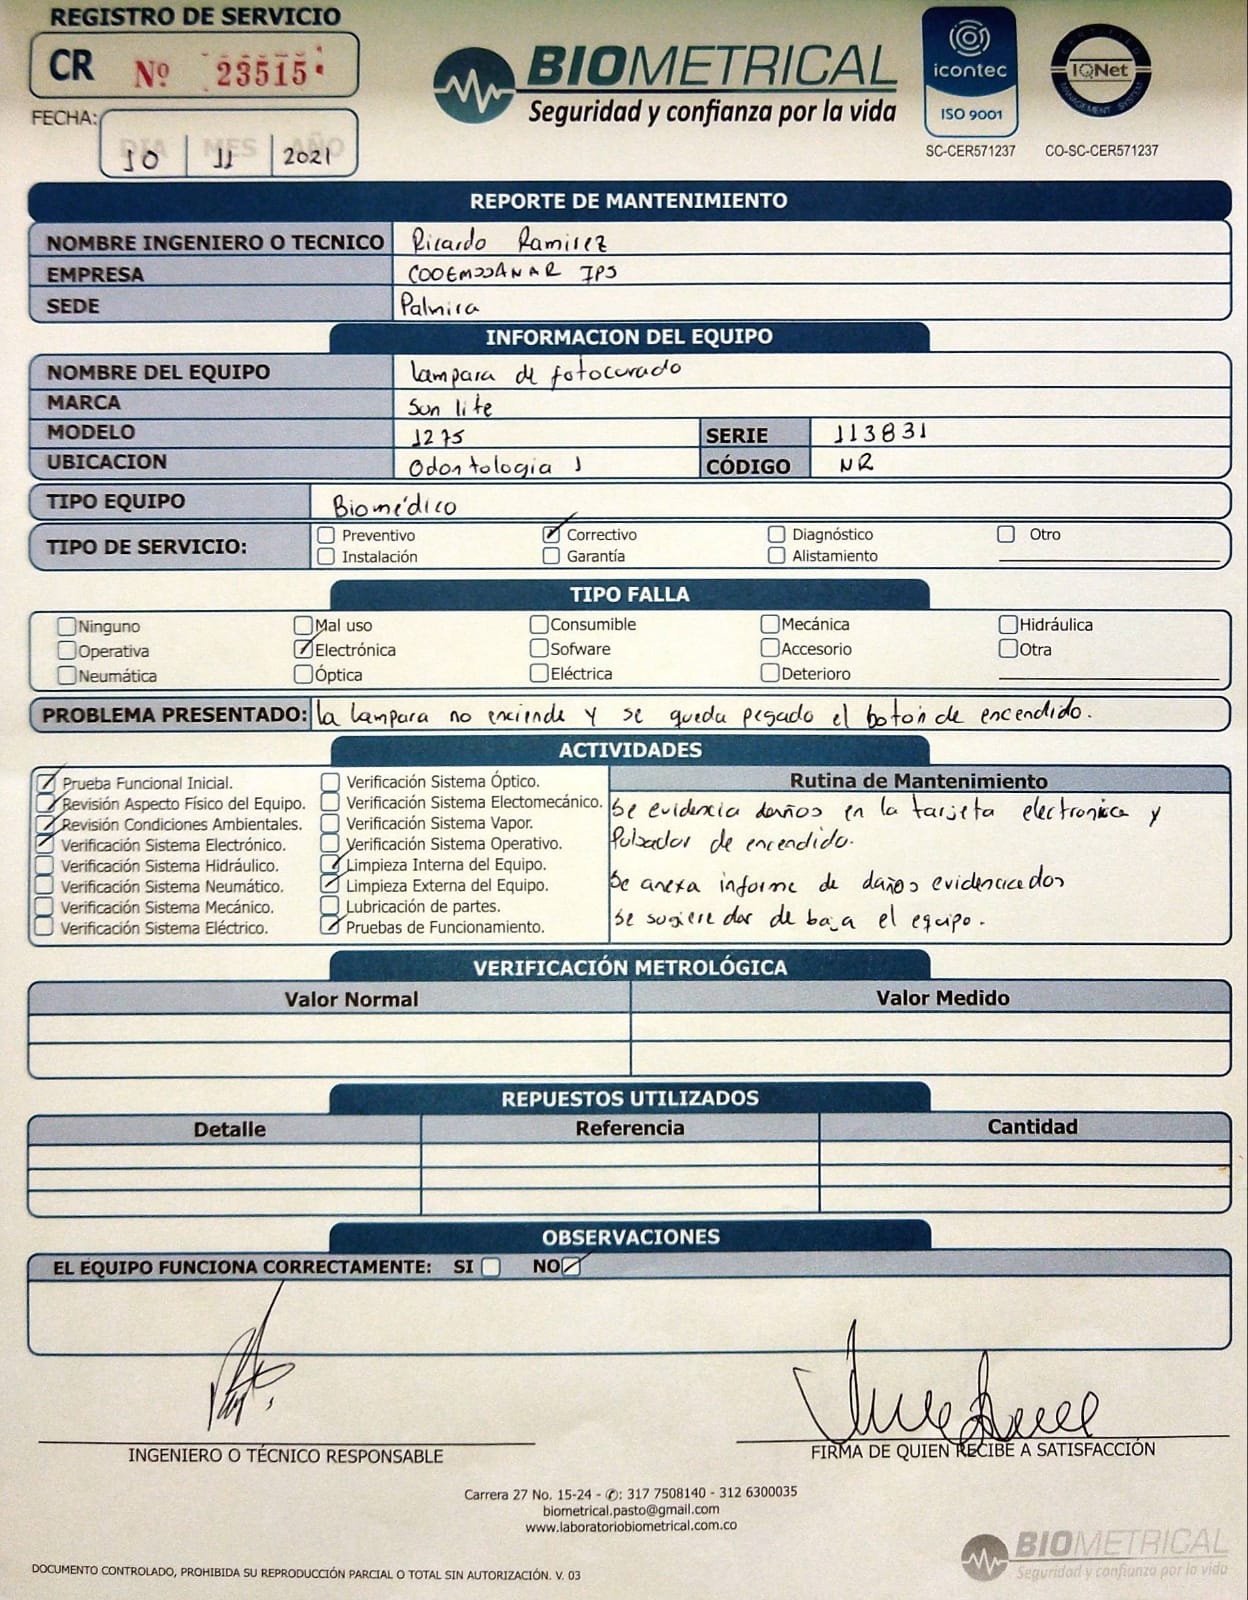 REGISTRO DE SERVICIO
CR Nº 23515
FECHA:
DIA MES AÑO
10 11 2021
BIOMETRICAL
Seguridad y confianza por la vida
icontec
ISO 9001
SC-CER571237
CERTIFIED
IQNet
MANAGEMENT SYSTEM
CO-SC-CER571237
REPORTE DE MANTENIMIENTO
NOMBRE INGENIERO O TECNICO Ricardo Ramirez
EMPRESA COOEMSSANAR IPS
SEDE Palmira
INFORMACION DEL EQUIPO
NOMBRE DEL EQUIPO lampara de fotocurado
MARCA Sun lite
MODELO 1275 SERIE 113831
UBICACION Odontologia 1 CÓDIGO NR
TIPO EQUIPO Biomédico
TIPO DE SERVICIO:
Preventivo Correctivo Diagnóstico Otro
Instalación Garantía Alistamiento
TIPO FALLA
Ninguno Mal uso Consumible Mecánica Hidráulica
Operativa Electrónica Sofware Accesorio Otra
Neumática Óptica Eléctrica Deterioro
PROBLEMA PRESENTADO: la lampara no enciende y se queda pegado el boton de encendido.
ACTIVIDADES
Prueba Funcional Inicial.
Revisión Aspecto Físico del Equipo.
Revisión Condiciones Ambientales.
Verificación Sistema Electrónico.
Verificación Sistema Hidráulico.
Verificación Sistema Neumático.
Verificación Sistema Mecánico.
Verificación Sistema Eléctrico.
Verificación Sistema Óptico.
Verificación Sistema Electomecánico.
Verificación Sistema Vapor.
Verificación Sistema Operativo.
Limpieza Interna del Equipo.
Limpieza Externa del Equipo.
Lubricación de partes.
Pruebas de Funcionamiento.
Rutina de Mantenimiento
Se evidencia daños en la tarjeta electronica y
Pulsador de encendido.
Se anexa informe de daños evidenciados
Se sugiere dar de baja el equipo.
VERIFICACIÓN METROLÓGICA
Valor Normal Valor Medido
REPUESTOS UTILIZADOS
Detalle Referencia Cantidad
OBSERVACIONES
EL EQUIPO FUNCIONA CORRECTAMENTE: SI NO
INGENIERO O TÉCNICO RESPONSABLE
FIRMA DE QUIEN RECIBE A SATISFACCIÓN
Carrera 27 No. 15-24 - ✆: 317 7508140 - 312 6300035
biometrical.pasto@gmail.com
www.laboratoriobiometrical.com.co
BIOMETRICAL
Seguridad y confianza por la vida
DOCUMENTO CONTROLADO, PROHIBIDA SU REPRODUCCIÓN PARCIAL O TOTAL SIN AUTORIZACIÓN. V. 03